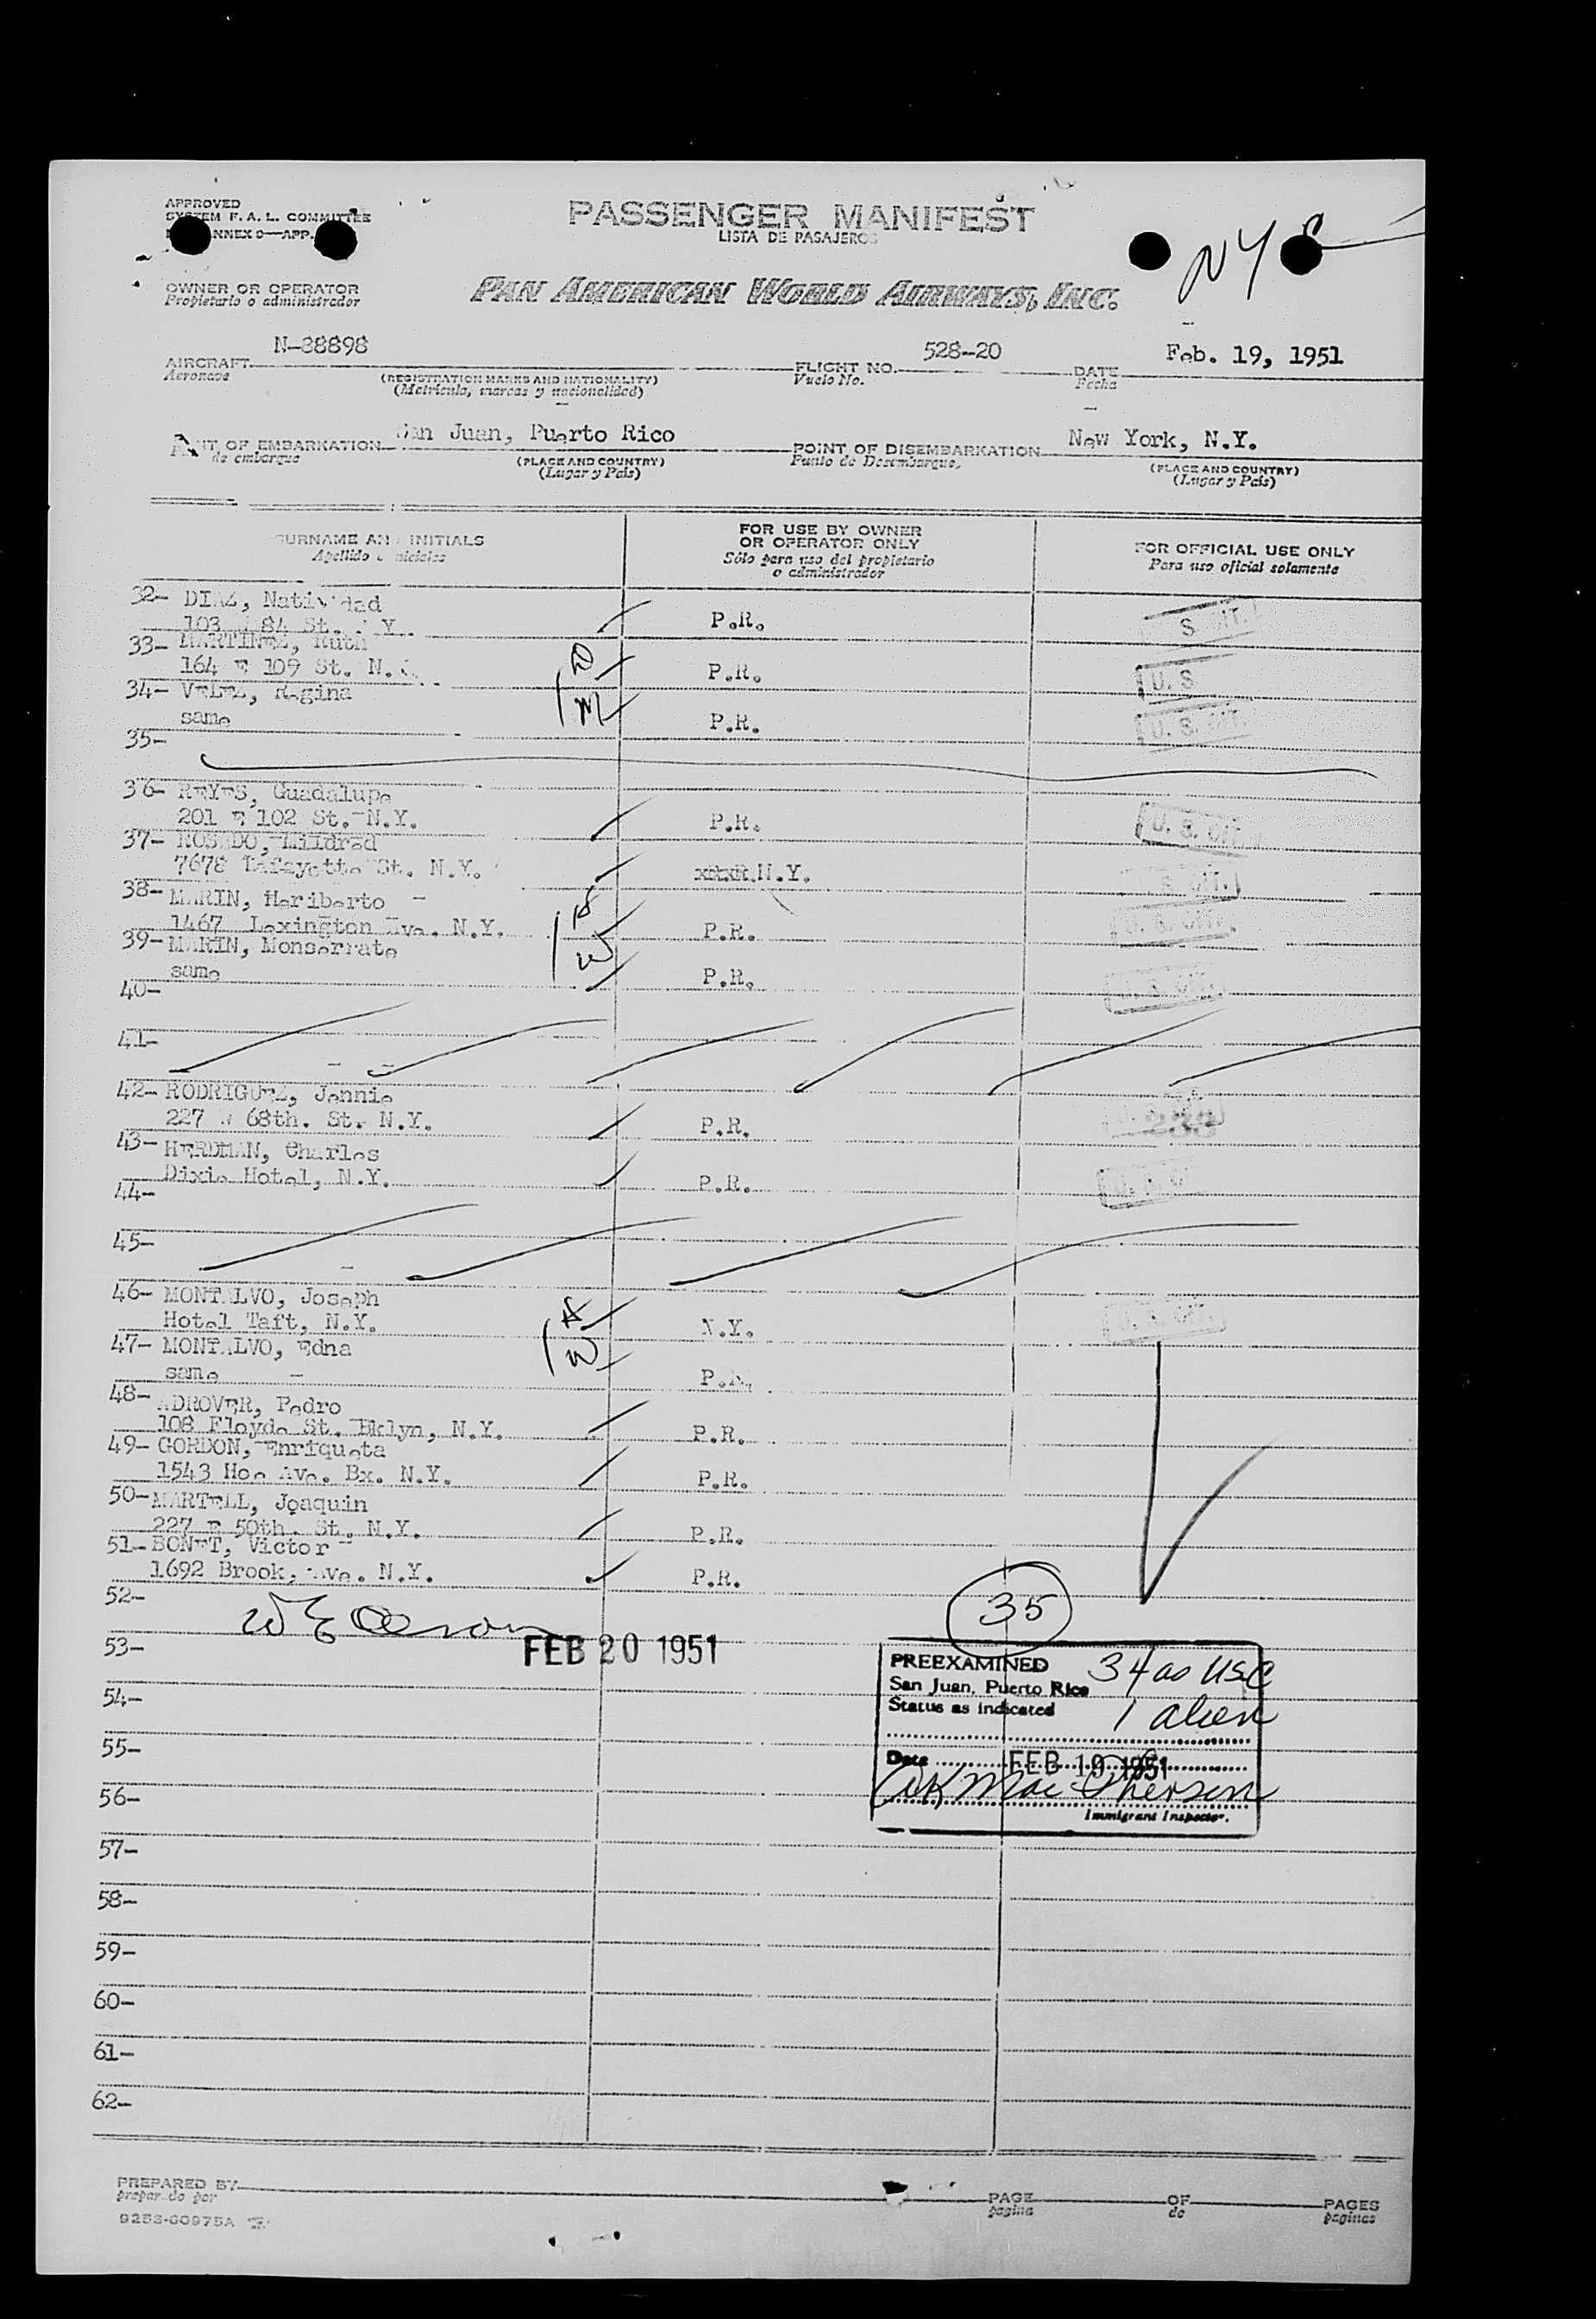 APPROVED
SYSTEM F. A. L. COMMITTEE
ANNEX 9—APP.
PASSENGER MANIFEST
LISTA DE PASAJEROS
NY
OWNER OR OPERATOR
Propietario o administrador
PAN AMERICAN WORLD AIRWAYS, INC.
AIRCRAFT N-88898 FLIGHT NO. 528-20 DATE Feb. 19, 1951
Aeronave (REGISTRATION MARKS AND NATIONALITY) Vuelo No. Fecha
(Matrícula, marcas y nacionalidad)
OF EMBARKATION San Juan, Puerto Rico POINT OF DISEMBARKATION New York, N.Y.
de embarque (PLACE AND COUNTRY) Punto de Desembarque, (PLACE AND COUNTRY)
(Lugar y País) (Lugar y País)
SURNAME AND INITIALS FOR USE BY OWNER OR OPERATOR ONLY FOR OFFICIAL USE ONLY
Apellido Sólo para uso del propietario o administrador Para uso oficial solamente
32- DIAZ, Natividad
103 84 St. Y. P.R. S. CIT.
33- MARTINEZ, Ruth
164 E 109 St. N. D P.R. U. S
34- VELEZ, Regina
same M P.R. U. S. CIT.
35-
36- REYES, Guadalupe
201 E 102 St. N.Y. P.R. U. S. CIT.
37- ROSADO, Mildred
7678 Lafayette St. N.Y. N.Y. S. CIT.
38- MARIN, Heriberto
1467 Lexington Ave. N.Y. H P.R. U. S. CIT.
39- MARIN, Monserrate
same W P.R. U. S. CIT.
40-
41-
42- RODRIGUEZ, Jennie
227 68th. St. N.Y. P.R. 233
43- HERDMAN, Charles
Dixie Hotel, N.Y. P.R.
44-
45-
46- MONTALVO, Joseph
Hotel Taft, N.Y. H N.Y. U. S. CIT.
47- MONTALVO, Edna
same W P.R.
48- ADROVER, Pedro
108 Floyde St. Bklyn, N.Y. P.R.
49- GORDON, Enriqueta
1543 Hoe Ave. Bx. N.Y. P.R.
50- MARTELL, Joaquin
227 E 50th. St. N.Y. P.R.
51- BONET, Victor
1692 Brook, Ave. N.Y. P.R.
52- 35
53- FEB 20 1951
PREEXAMINED 34 as USC
San Juan, Puerto Rico
Status as indicated 1 alien
54-
55-
Date FEB 19 1951
56-
Immigrant Inspector.
57-
58-
59-
60-
61-
62-
PREPARED BY PAGE OF PAGES
preparado por pagina de paginas
9253-60975A